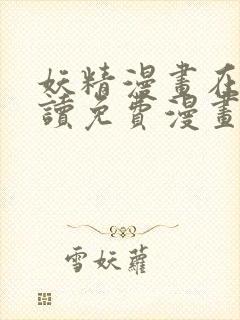 妖精漫畫在
讀免費漫畫
雪妖蘿